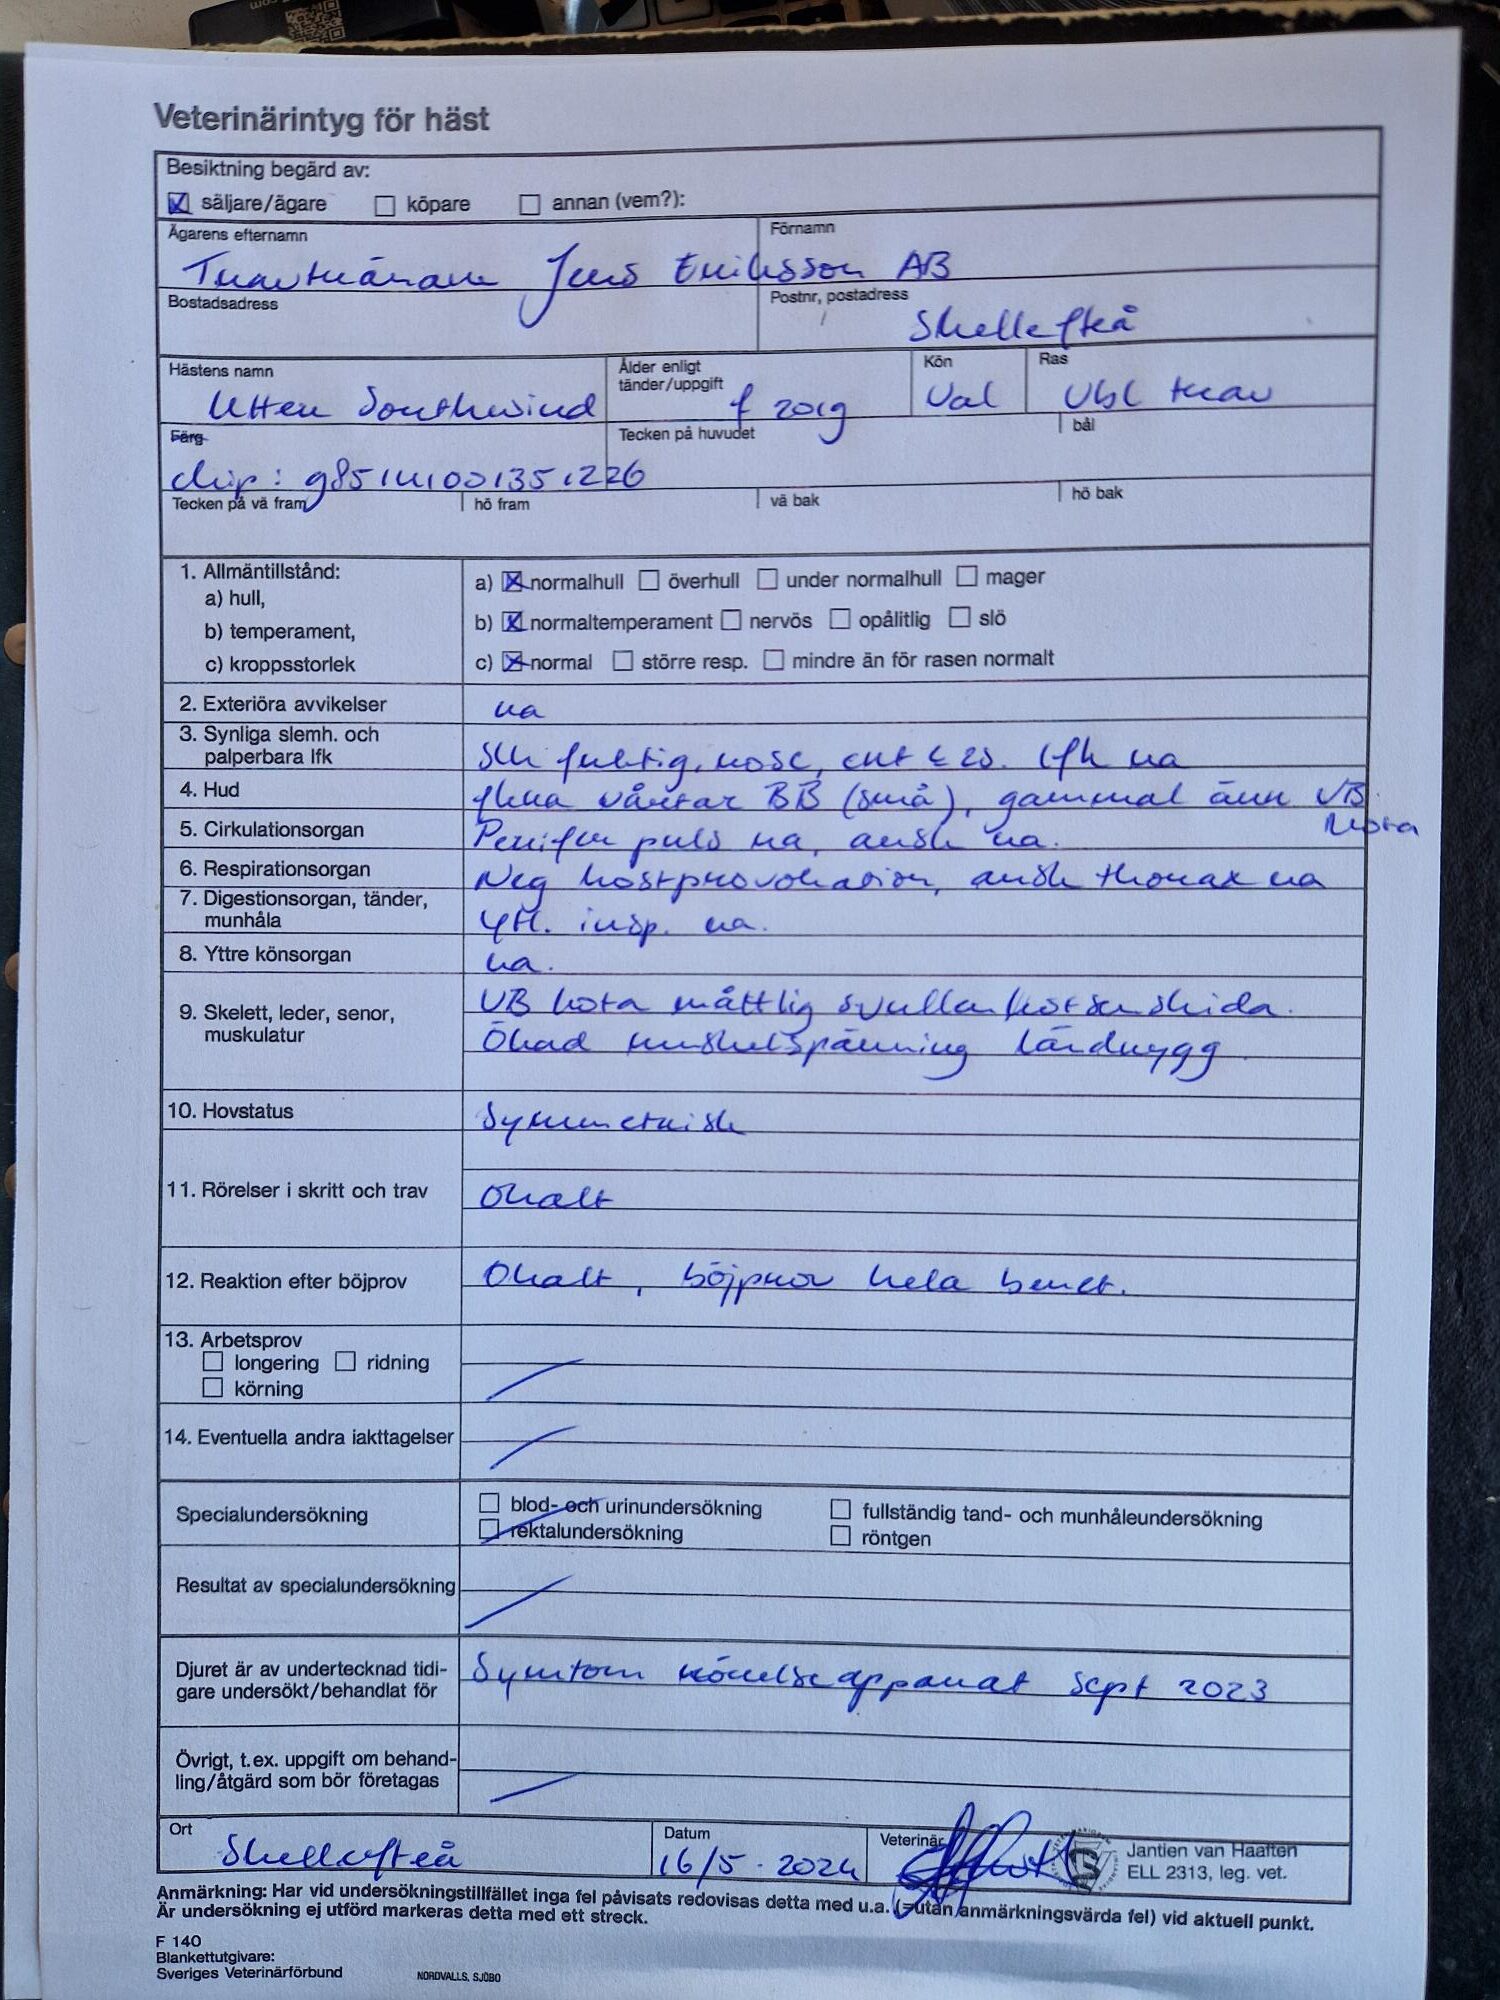 Veterinärintyg för häst
Besiktning begärd av:
säljare/ägare köpare annan (vem?):
Ägarens efternamn Förnamn
Travtränare Jens Eriksson AB
Bostadsadress Postnr, postadress
Skellefteå
Hästens namn Ålder enligt tänder/uppgift Kön Ras
Southwind f 2019 Val Vbl trav
Färg Tecken på huvudet bål
chip:
Tecken på vä fram hö fram vä bak hö bak
1. Allmäntillstånd:
a) hull, a) normalhull överhull under normalhull mager
b) temperament, b) normaltemperament nervös opålitlig slö
c) kroppsstorlek c) normal större resp. mindre än för rasen normalt
2. Exteriöra avvikelser ua
3. Synliga slemh. och
palperbara lfk Slh fuktig, rosa, CRT < 2s. lfk ua
4. Hud flera vårtor BB (små), gammal ärr VB
kota
5. Cirkulationsorgan Perifer puls ua, ausk ua.
6. Respirationsorgan Neg hostprovokation, ausk thorax ua
7. Digestionsorgan, tänder,
munhåla ytl. insp. ua.
8. Yttre könsorgan ua.
9. Skelett, leder, senor,
muskulatur
VB kota måttlig svullen kotsenskida.
Ökad muskelspänning ländrygg.
10. Hovstatus Symmetrisk
11. Rörelser i skritt och trav Ohalt
12. Reaktion efter böjprov Ohalt, böjprov hela benet.
13. Arbetsprov
longering ridning
körning
14. Eventuella andra iakttagelser
Specialundersökning blod- och urinundersökning fullständig tand- och munhåleundersökning
rektalundersökning röntgen
Resultat av specialundersökning
Djuret är av undertecknad tidi-
gare undersökt/behandlat för Symtom rörelseapparat sept 2023
Övrigt, t.ex. uppgift om behand-
ling/åtgärd som bör företagas
Ort Datum Veterinär
Skellefteå 16/5 - 2024
Jantien van Haaften
ELL 2313, leg. vet.
Anmärkning: Har vid undersökningstillfället inga fel påvisats redovisas detta med u.a. (=utan anmärkningsvärda fel) vid aktuell punkt.
Är undersökning ej utförd markeras detta med ett streck.
F 140
Blankettutgivare:
Sveriges Veterinärförbund NORDVALLS, SJÖBO